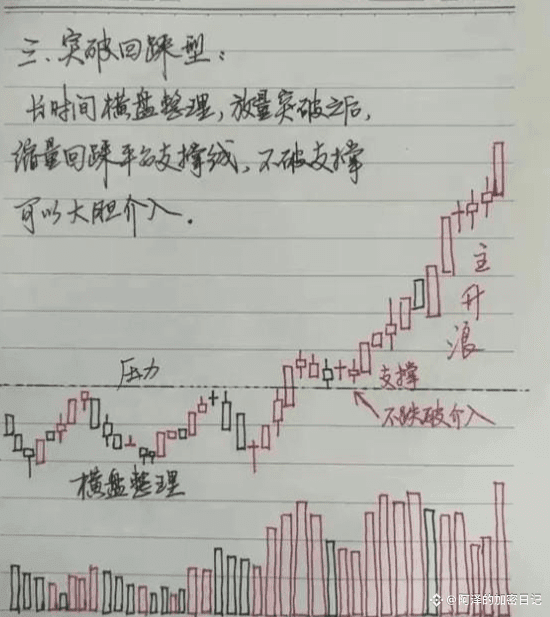 三、突破回踩型：
长时间横盘整理，放量突破之后，
缩量回踩平台支撑线，不破支撑
可以大胆介入．
主升浪
压力
支撑
不跌破介入
横盘整理
@阿泽的加密日记